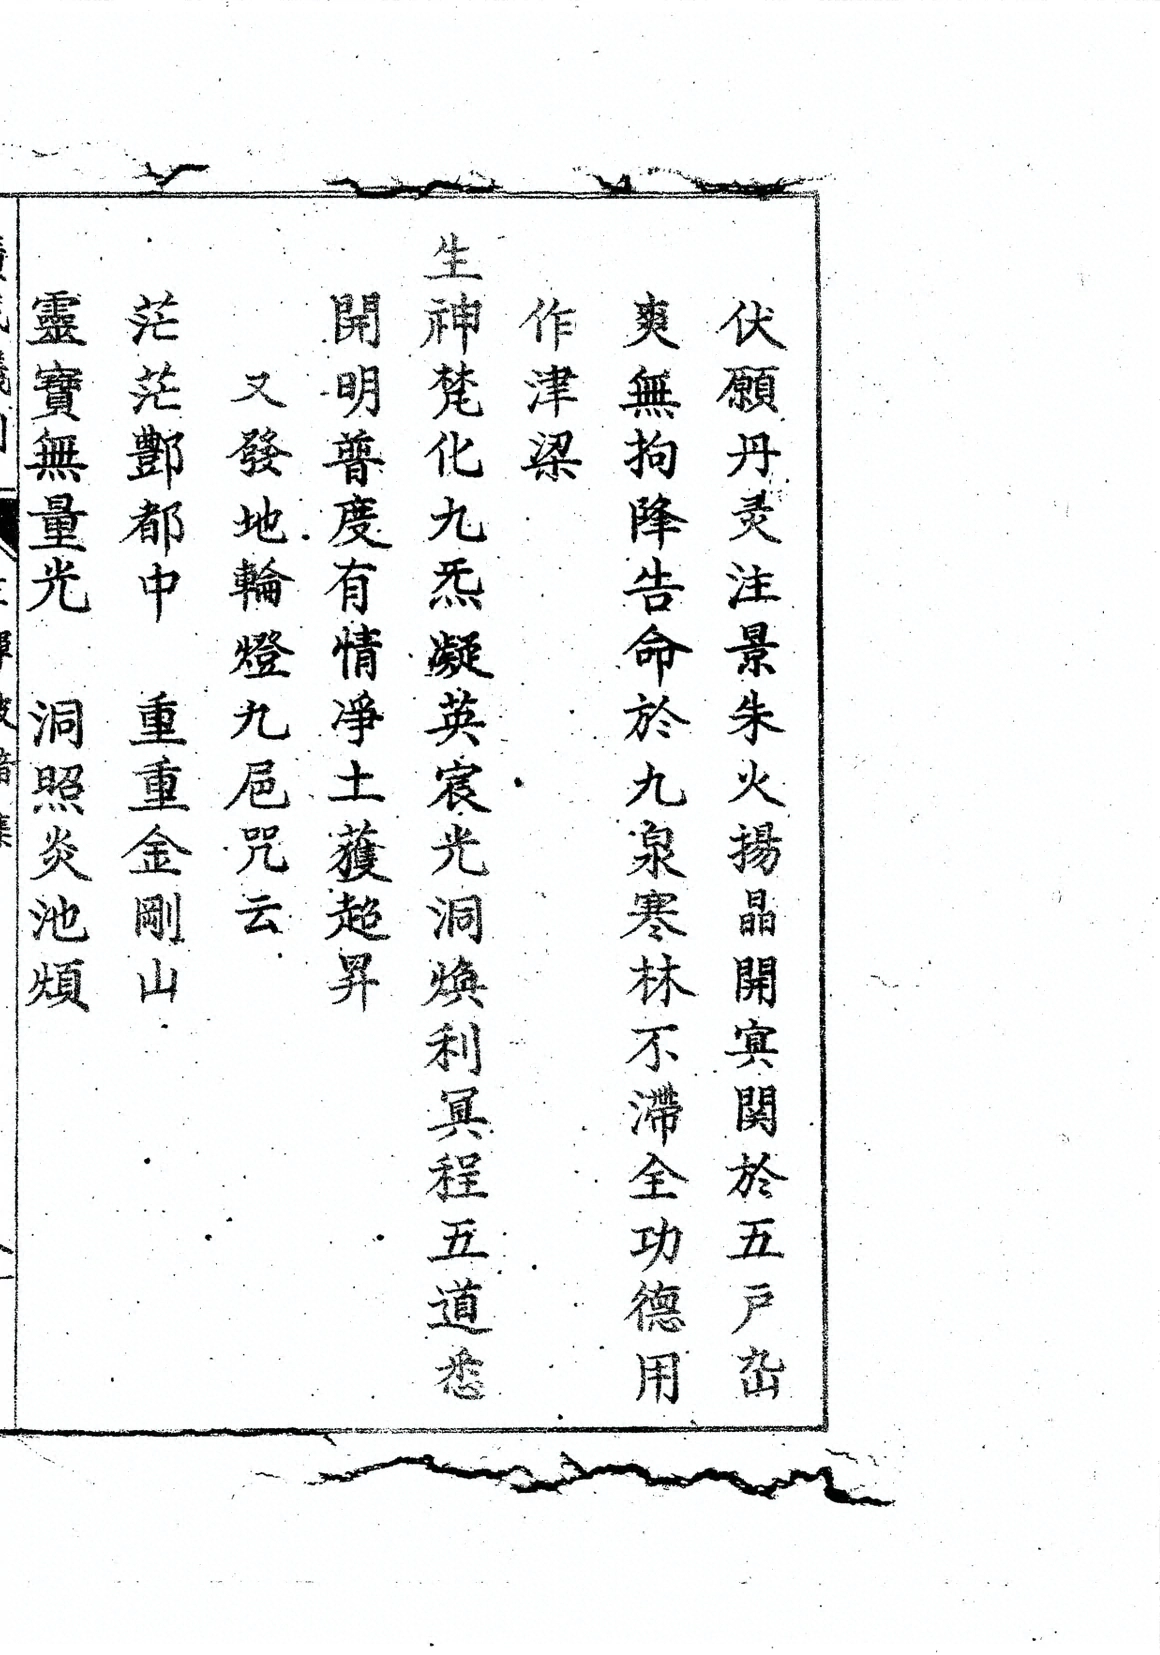 伏願丹灵注景朱火揚晶開寞関於五戸
爽無拘降告命於九泉寒林不滯全功德用
作津梁
生神梵化九炁凝英宸光洞煥利冥程五道悉
開明普度有情淨土蒦超昇
又發地輪燈九巵咒云
茫茫酆都中　重重金剛山
靈寶無量光　洞照炎池煩